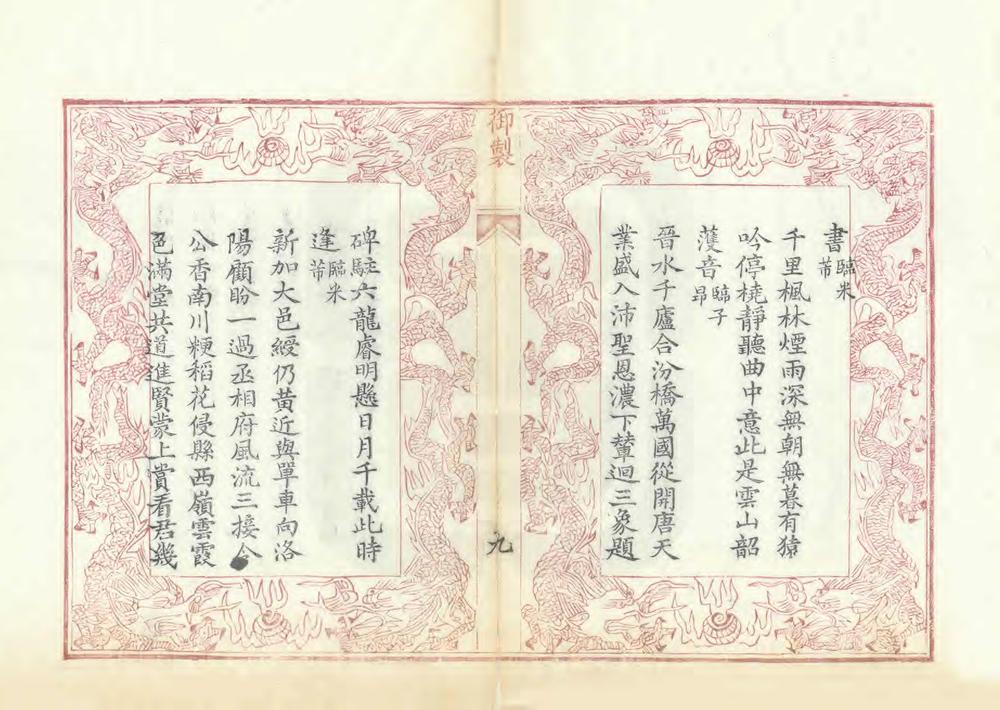 書臨米芾
千里楓林煙雨深無朝無暮有猿
吟停橈靜聽曲中意此是雲山韶
濩音臨子昂
晉水千廬合汾橋萬國從開唐天
業盛入沛聖恩濃下輦迴三象題
御製
九
碑駐六龍睿明懸日月千載此時
逢臨米芾
新加大邑綬仍黃近與單車向洛
陽顧盼一過丞相府風流三接令
公香南川粳稻花侵縣西嶺雲霞
色滿堂共道進賢蒙上賞看君幾